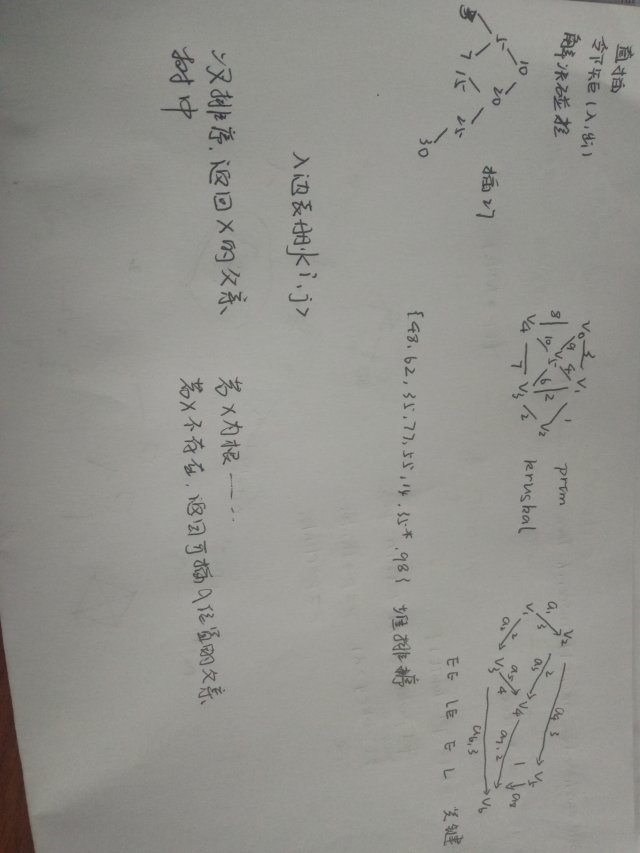 直插
邻矩(入,出)
解决碰撞
10
5 20
7 15 25
30
插27
V0 3 V1
8 9 4 1
V5 2 V2
10 6
V4 7 V3 2
prim
kruskal
V2 a4 3 V5
a1 3 a3 2
V1 V4 1 a8
a2 2 a5 4 a7,2
V3 a6,3 V6
EE LE E L 关键
{48,62,35,77,55,14,35*,98} 堆排序
入边表删<i,j>
二叉排序,返回X的父亲
树中
若X为根……
若X不存在,返回可插入位置的父亲